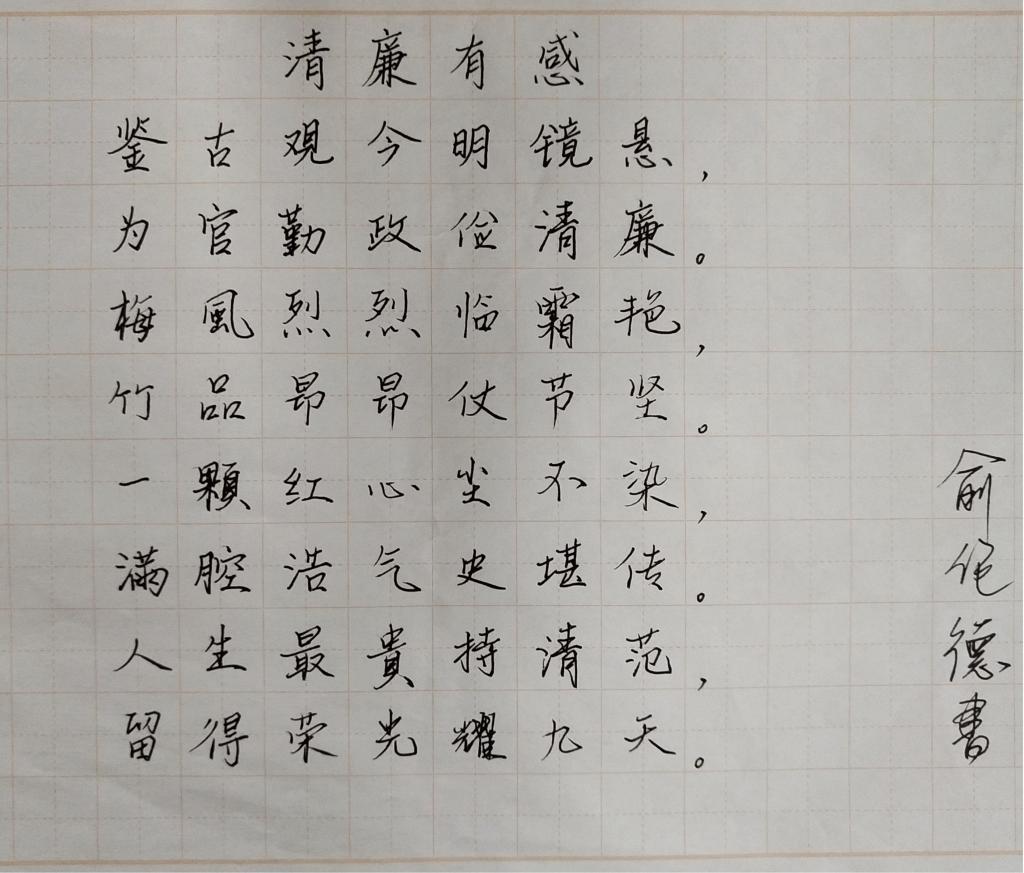 清廉有感
鉴古观今明镜悬，
为官勤政俭清廉。
梅風烈烈临霜艳，
竹品昂昂仗节坚。
一顆红心尘不染，
满腔浩气史堪传。
人生最貴持清范，
留得荣光耀九天。
俞佗德書